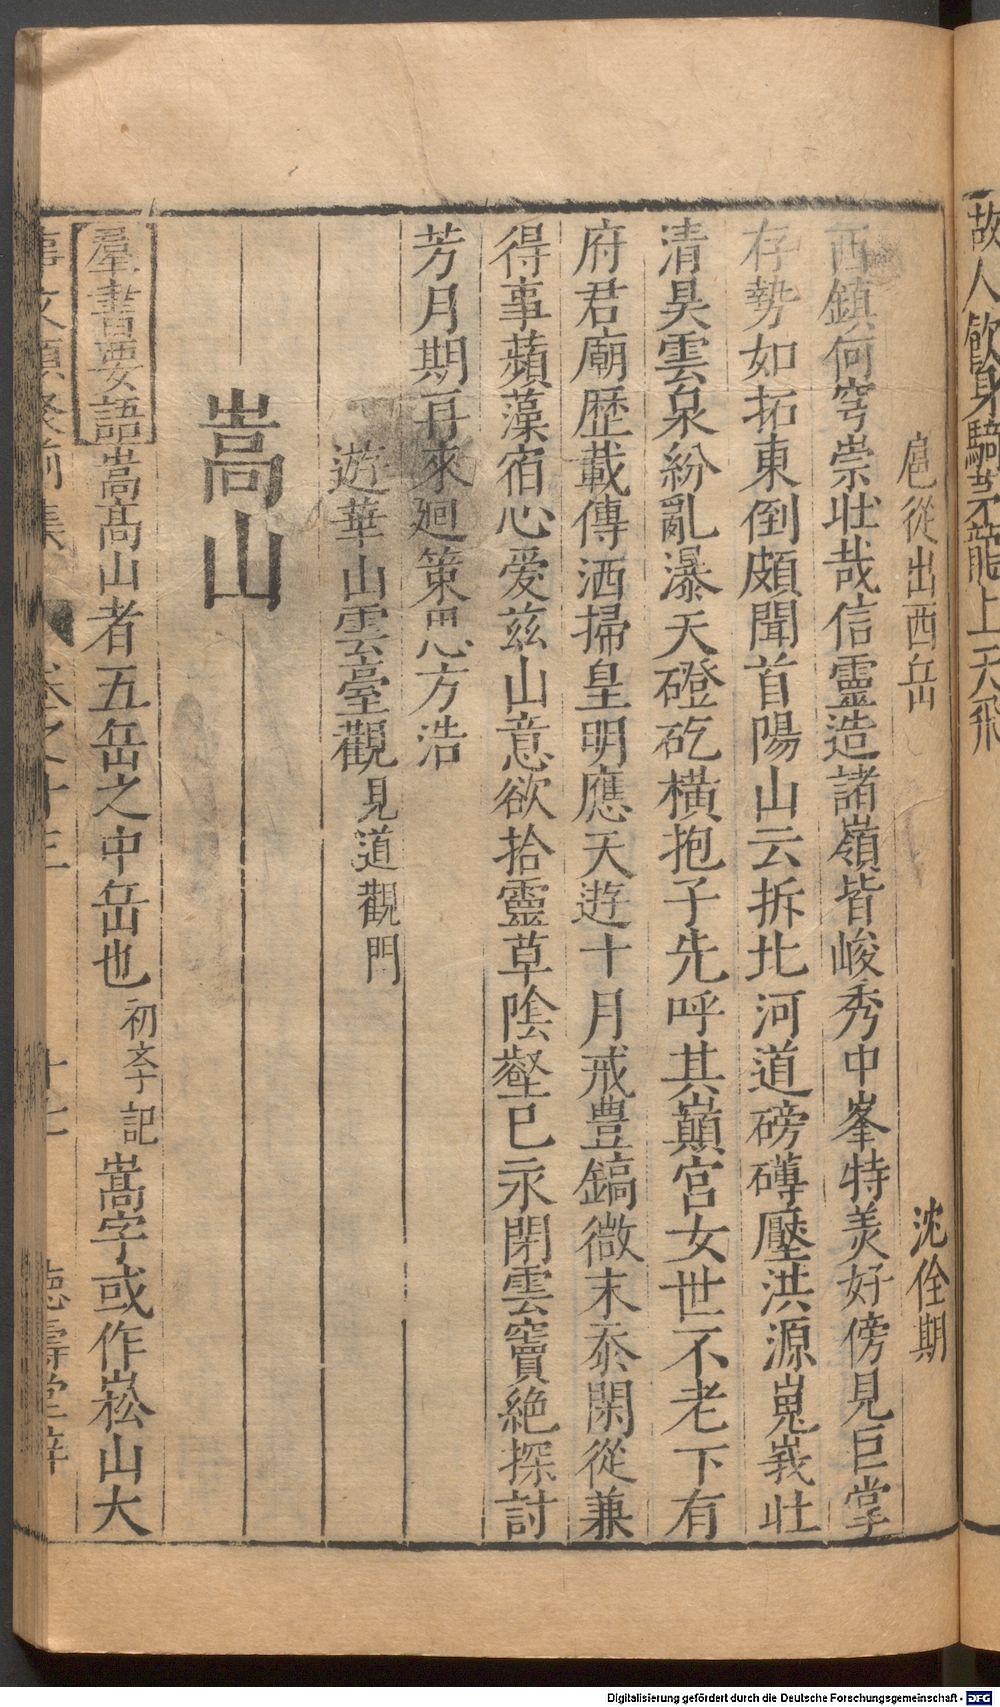 故人飲身騎茅龍上天飛
扈從出西岳　沈佺期
西鎮何穹崇壯哉信靈造諸嶺皆峻秀中峯特羙好傍見巨掌
存勢如拓東倒頗聞首陽山云拆北河道磅礴壓洪源嵬峩壮
清昊雲泉紛亂瀑天磴矻橫抱子先呼其巔宮女世不老下有
府君廟歴載傳洒掃皇明應天遊十月戒豊鎬微末忝閑從兼
得事蘋藻宿心爱兹山意欲拾靈草陰壑已氷閉雲竇絶探討
芳月期再來廻策思方浩
遊華山雲臺觀見道觀門
嵩山
羣書要語嵩髙山者五岳之中岳也初斈記嵩字或作崧山大
事文類聚前集　卷之十三　十七　德壽堂梓
Digitalisierung gefördert durch die Deutsche Forschungsgemeinschaft - DFG